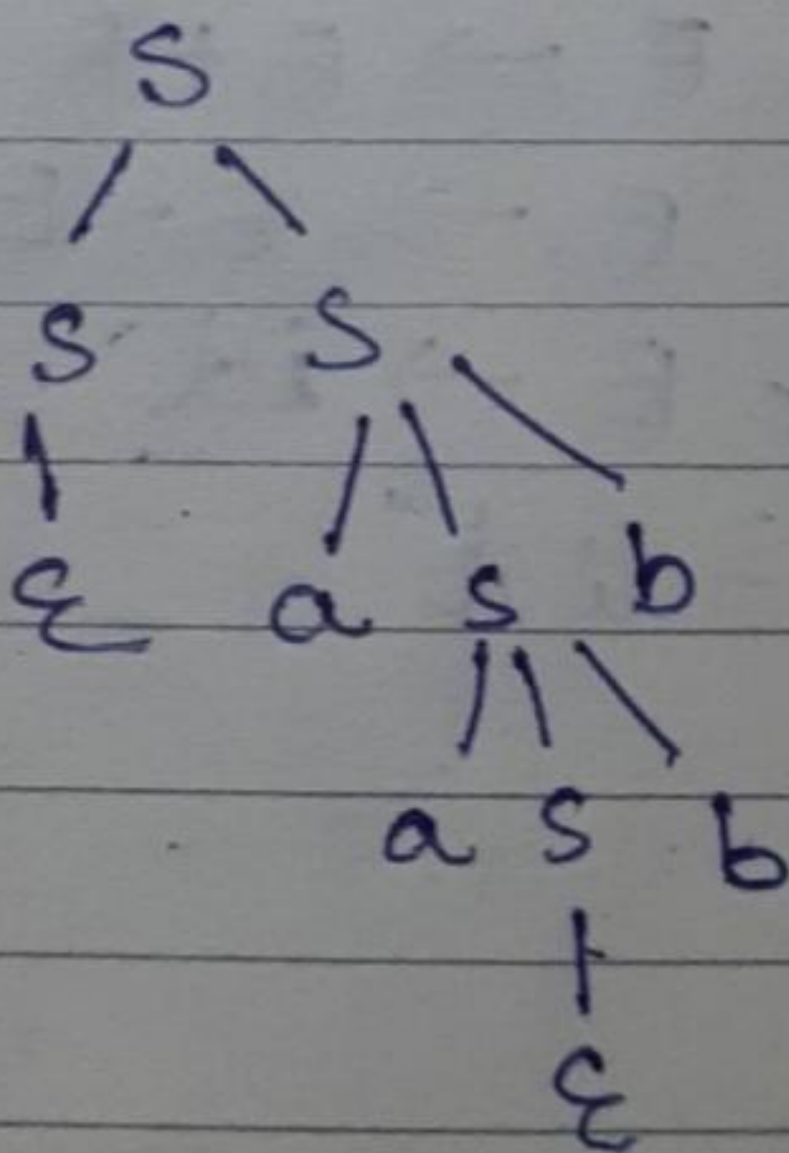 S
S S
ε a S b
a S b
ε